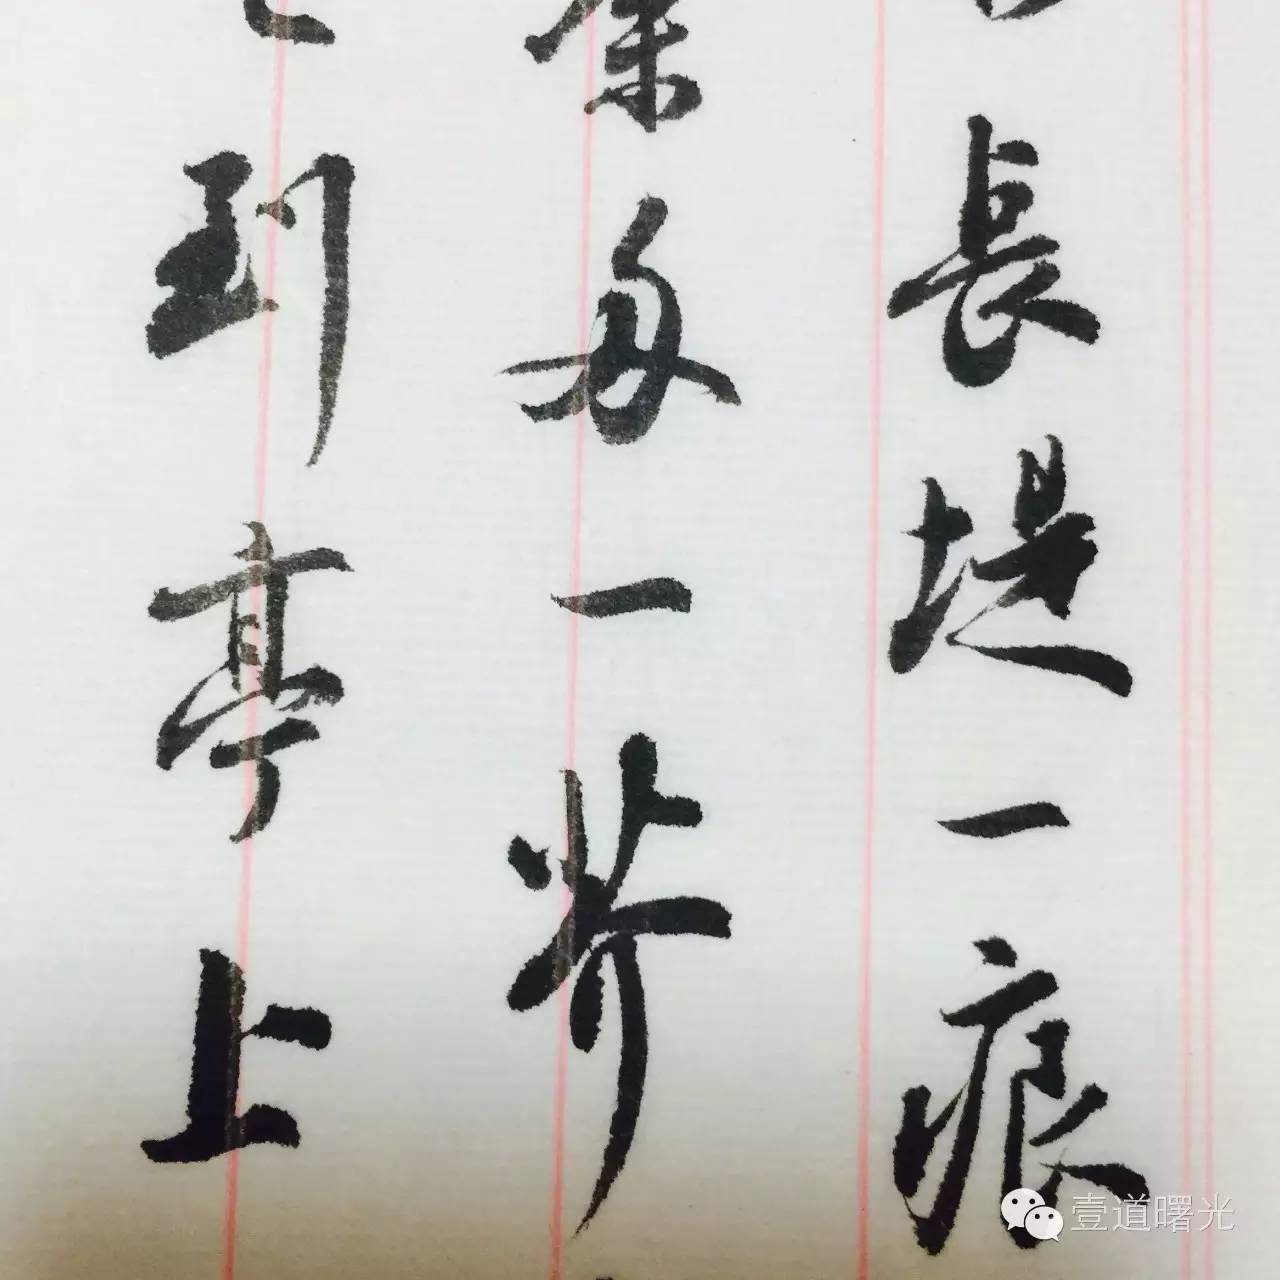 長堤一痕
余舟一芥
到亭上
壹道曙光